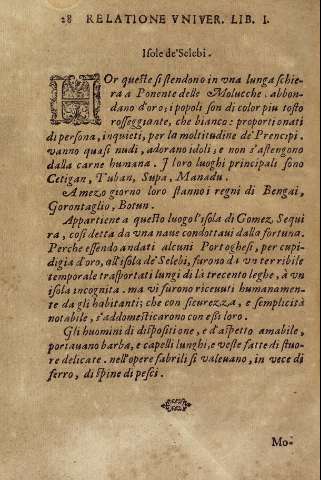 28 RELATIONE VNIVER. LIB. I.
Isole de'Selebi.
HOr queste si stendono in vna lunga schie-
ra a Ponente delle Molucche. abbon-
dano d'oro; i popoli son di color piu tosto
rosseggiante, che bianco: proportionati
di persona, inquieti, per la moltitudine de'Prencipi.
vanno quasi nudi, adorano idoli, e non s'astengono
dalla carne humana. I loro luoghi principali sono
Cetigan, Tuban, Supa, Manadu.
A mezo giorno loro stanno i regni di Bengai,
Gorontaglio, Botun.
Appartiene a questo luogo l'isola di Gomez Sequi
ra, così detta da vna naue condottaui dalla fortuna.
Perche essendo andati alcuni Portoghesi, per cupi-
digia d'oro, all'isola de'Selebi, furono da vn terribile
temporale trasportati lungi di là trecento leghe, à vn
isola incognita. ma vi furono riceuuti humanamen-
te da gli habitanti; che con sicurezza, e semplicità
notabile, s'addomesticarono con essi loro.
Gli huomini di dispositione, e d'aspetto amabile,
portauano barba, e capelli lunghi, e veste fatte di stuo-
re delicate. nell'opere fabrili si valeuano, in vece di
ferro, di spine di pesci.
Mo-